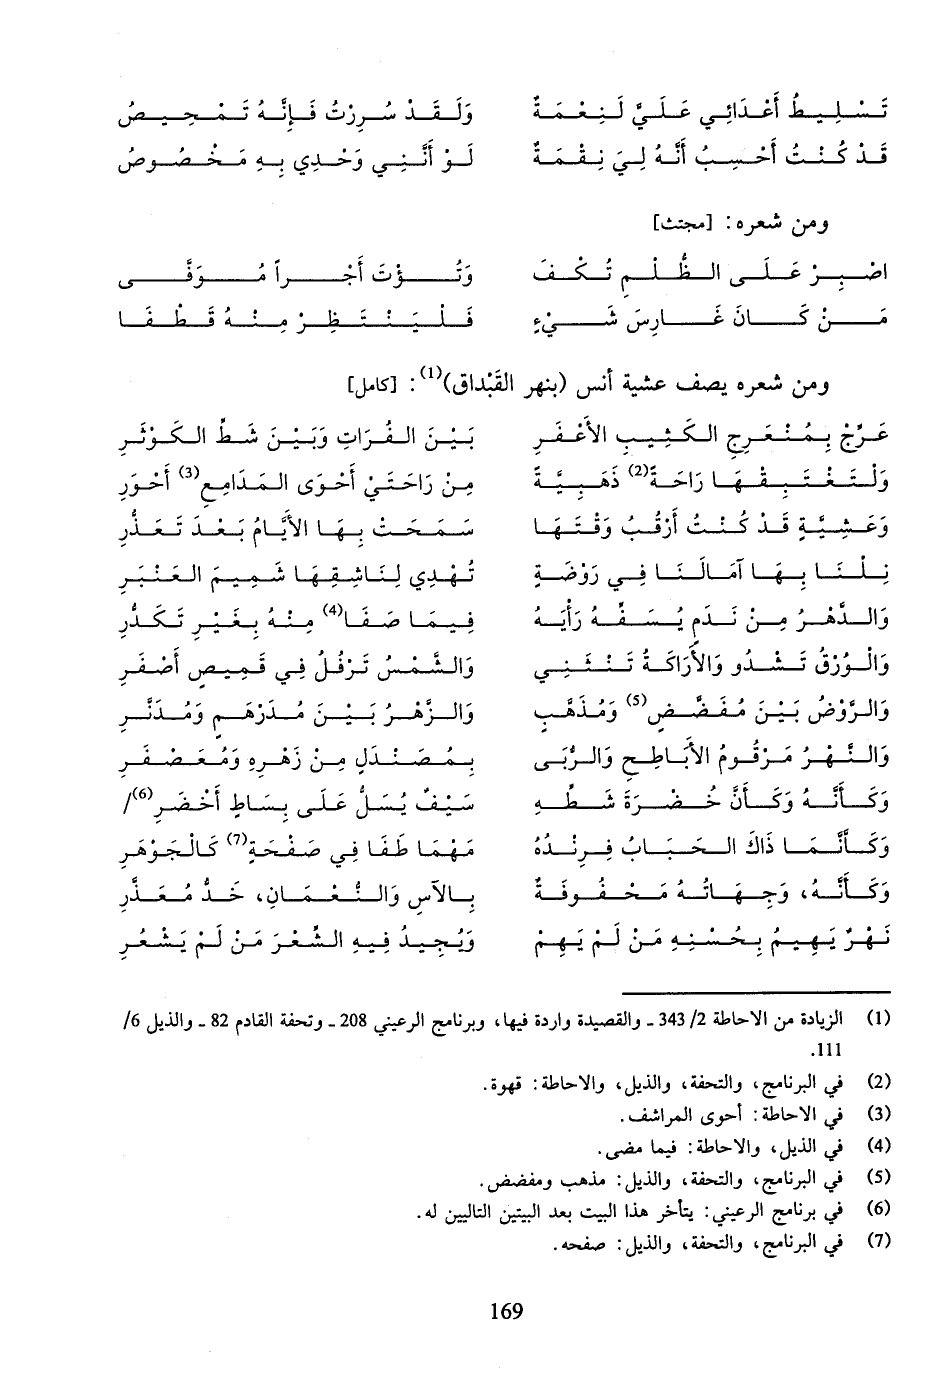 تَسْلِيطُ أَعْدَائِي عَلَيَّ لَنِعْمَةٌ وَلَقَدْ سُرِرْتُ فَإِنَّهُ تَمْحِيصُ
قَدْ كُنْتُ أَحْسِبُ أَنَّهُ لِيَ نِقْمَةٌ لَوْ أَنَّنِي وَحْدِي بِهِ مَخْصُوصُ
ومن شعره : [مجتث]
اصْبِرْ عَلَى الظُّلْمِ تُكْفَ وَتُؤْتَ أَجْراً مُوَفَّى
مَنْ كَانَ غَارِسَ شَيْءٍ فَلْيَنْتَظِرْ مِنْهُ قَطْفَا
ومن شعره يصف عشية أنس (بنهر القَبْدَاق)(1) : [كامل]
عَرِّجْ بِمُنْعَرِجِ الكَثِيبِ الأَعْفَرِ بَيْنَ الفُرَاتِ وَبَيْنَ شَطِّ الكَوْثَرِ
وَلْتَغْتَبِقْهَا رَاحَةً(2) ذَهَبِيَّةً مِنْ رَاحَتَيْ أَحْوَى المَدَامِعِ(3) أَحْوَرِ
وَعَشِيَّةٍ قَدْ كُنْتُ أَرْقُبُ وَقْتَهَا سَمَحَتْ بِهَا الأَيَّامُ بَعْدَ تَعَذُّرِ
نِلْنَا بِهَا آمَالَنَا فِي رَوْضَةٍ تُهْدِي لِنَاشِقِهَا شَمِيمَ العَنْبَرِ
وَالدَّهْرُ مِنْ نَدَمٍ يُسَفِّهُ رَأْيَهُ فِيمَا صَفَا(4) مِنْهُ بِغَيْرِ تَكَدُّرِ
وَالوُرْقُ تَشْدُو وَالأَرَاكَةُ تَنْثَنِي وَالشَّمْسُ تَرْفُلُ فِي قَمِيصٍ أَصْفَرِ
وَالرَّوْضُ بَيْنَ مُفَضَّضٍ(5) وَمُذَهَّبٍ وَالزَّهْرُ بَيْنَ مُدَرْهَمٍ وَمُدَنَّرِ
وَالنَّهْرُ مَرْقُومُ الأَبَاطِحِ وَالرُّبَى بِمُصَنْدَلٍ مِنْ زَهْرِهِ وَمُعَصْفَرِ
وَكَأَنَّهُ وَكَأَنَّ خُضْرَةَ شَطِّهِ سَيْفٌ يُسَلُّ عَلَى بِسَاطٍ أَخْضَرِ(6)/
وَكَأَنَّمَا ذَاكَ الحَبَابُ فِرِنْدُهُ مَهْمَا طَفَا فِي صَفْحَةٍ(7) كَالجَوْهَرِ
وَكَأَنَّهُ، وَجِهَاتُهُ مَحْفُوفَةٌ بِالآسِ وَالنُّعْمَانِ، خَدُّ مُعَذَّرِ
نَهْرٌ يَهِيمُ بِحُسْنِهِ مَنْ لَمْ يَهِمْ وَيُجِيدُ فِيهِ الشِّعْرَ مَنْ لَمْ يَشْعُرِ
(1) الزيادة من الاحاطة 2/ 343 ـ والقصيدة واردة فيها، وبرنامج الرعيني 208 ـ وتحفة القادم 82 ـ والذيل 6/
111.
(2) في البرنامج، والتحفة، والذيل، والاحاطة: قهوة.
(3) في الاحاطة: أحوى المراشف.
(4) في الذيل، والاحاطة: فيما مضى.
(5) في البرنامج، والتحفة، والذيل: مذهب ومفضض.
(6) في برنامج الرعيني: يتأخر هذا البيت بعد البيتين التاليين له.
(7) في البرنامج، والتحفة، والذيل: صفحه.
169